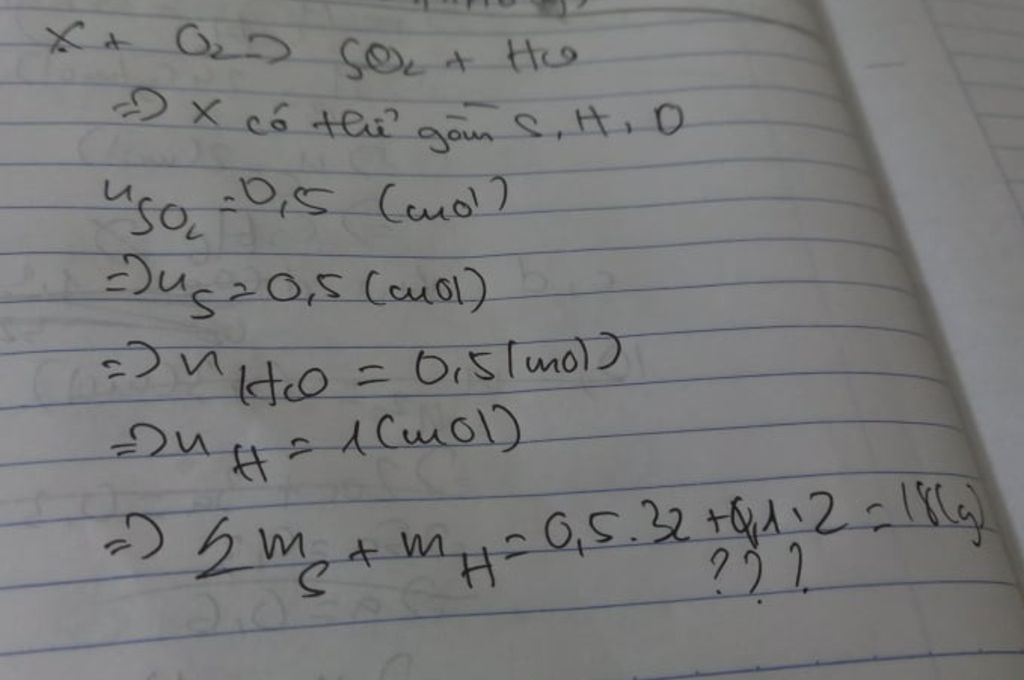 X + O₂ => SO₂ + H₂O
=> X có thể gồm S, H, O
nSO₂ = 0,5 (mol)
=> nS = 0,5 (mol)
=> nH₂O = 0,5 (mol)
=> nH = 1 (mol)
=> Σ mS + mH = 0,5.32 + 1.2 = 18 (g)
? ? ?